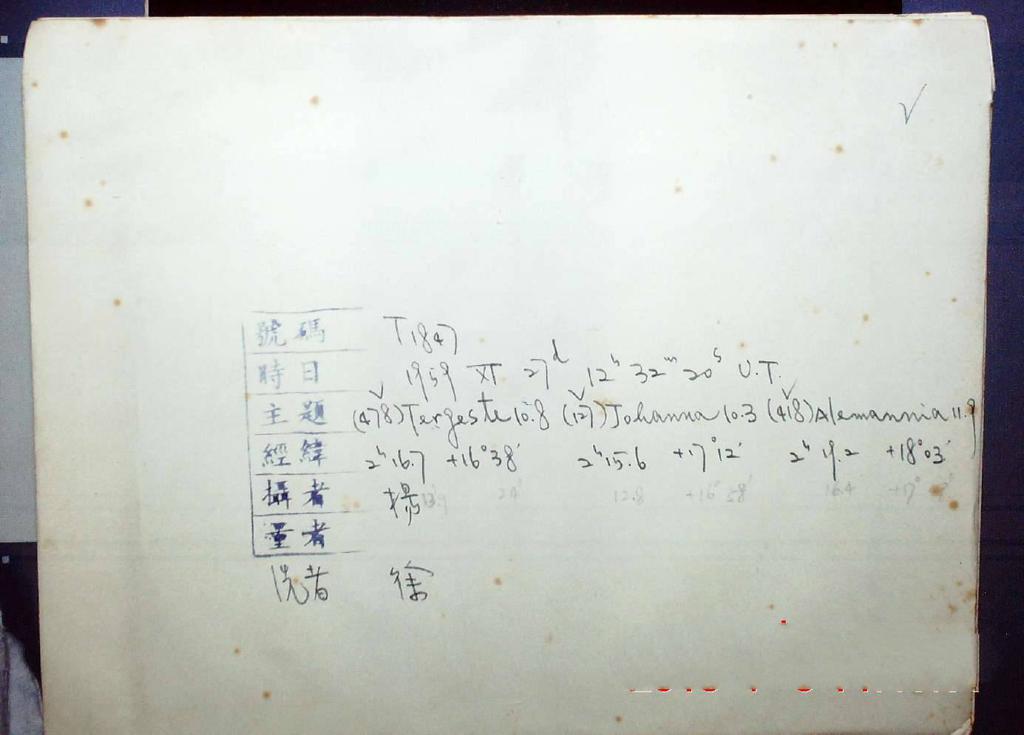 號碼 T1847
時日 1959 XI 27d 12h 32m 20s U.T.
主題 (478) Tergeste 10.8 (127) Johanna 10.3 (418) Alemannia 11.9
經緯 2h16.7 +16°38′ 2h15.6 +17°12′ 2h19.2 +18°03′
攝者 楊 12.8 +16° 58′ 16.4 +17°
量者
洗者 徐